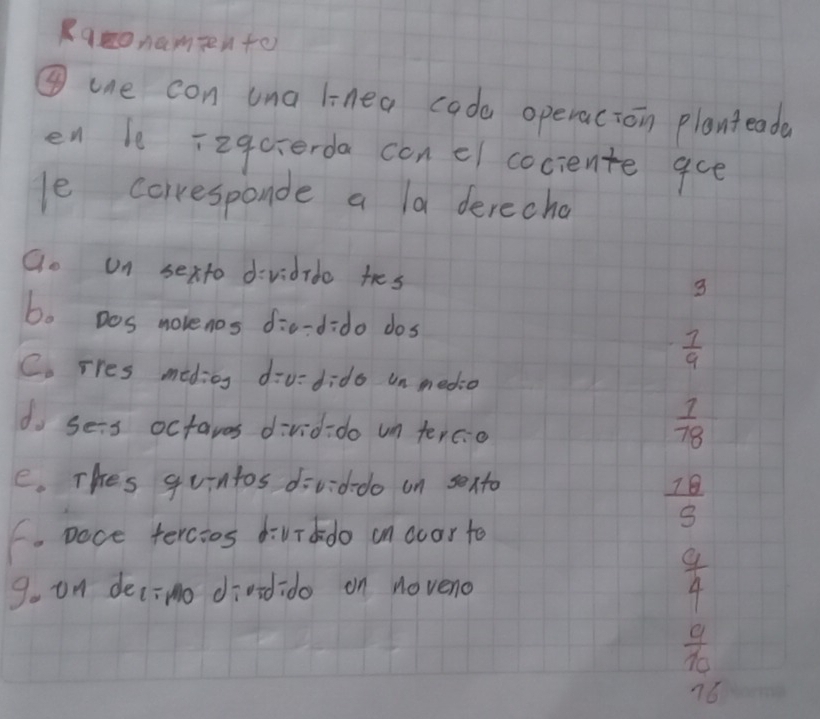 Razonamiento
④ une con una linea cada operación planteada
en la izquierda con el cociente que
le corresponde a la derecha
a. un sexto dividido tres
3
b. Dos novenos dividido dos
1/9
c. Tres medios dividido un medio
1/18
d. seis octavos dividido un tercio
e. Tres quintos dividido un sexto
18/5
f. Doce tercios dividido un cuarto
9/4
g. un decimo dividido un noveno
9/10
16